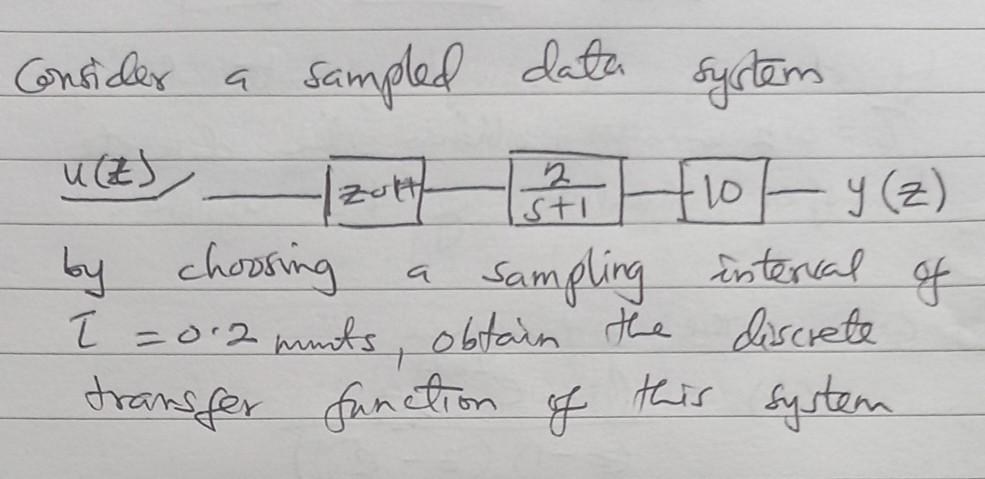 Consider a sampled data system
u(z) ZOH 2/s+1 10 y(z)
by choosing a sampling interval of
T = 0.2 , obtain the discrete
transfer function of this system